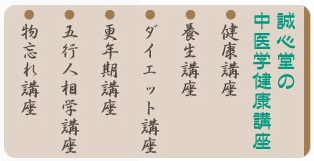 誠心堂の
中医学健康講座
健康講座
養生講座
ダイエット講座
更年期講座
五行人相学講座
物忘れ講座